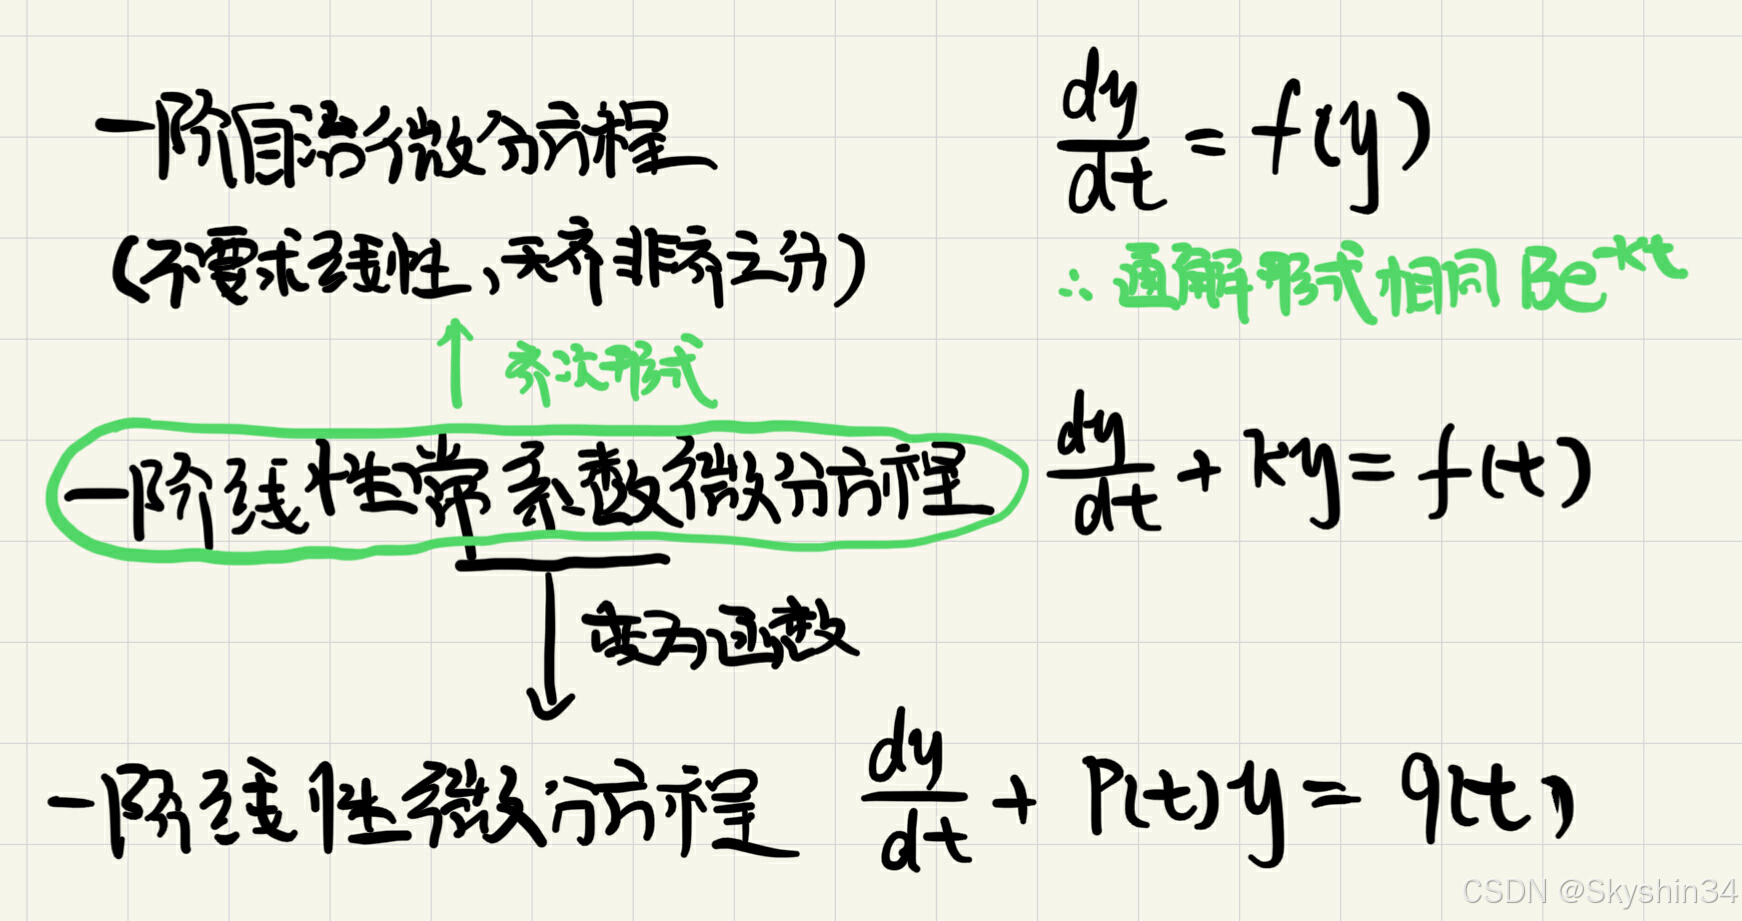 一阶自治微分方程 dy/dt = f(y)
(不要求线性,无齐非齐之分)
∴ 通解形式相同 Be^-kt
↑ 齐次形式
一阶线性常系数微分方程 dy/dt + ky = f(t)
↓ 变为函数
一阶线性微分方程 dy/dt + P(t)y = q(t)
CSDN @Skyshin34